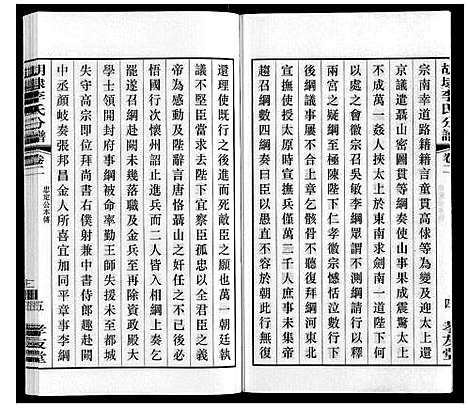 胡隸李氏分譜
卷二
四
孝友堂
宗南幸道路籍籍言童貫高俅等為變及迎太上還
京議遣聶山圖貫等綱奏使山事果成震驚太上
不成萬一為貫等挾太上於東南求劍南一道陛下何
以處之會徽宗召吳敏李綱眾謂不測綱請行以釋
兩宮之疑綱至極陳陛下仁孝徽宗感悟泣數行下
後綱議事屢不合上章乞骸骨不聽復拜綱河東
宣撫使授以兵僅萬二千人庶事未集帝
趨召綱數四綱曰愚直不容於朝此行無復
還理使既行之後進而死敵臣之願也萬一朝廷執
議不堅臣當求去陛下宜察臣孤忠以全君臣之義
帝為感動及陛辭言唐恪聶山之奸任之不已不
悟國行次懷州詔止進兵而二人皆得直達上奏乞
遂召綱赴闕未幾落職及金人再至除資政殿大
學士領開封府事綱被命率勤王師入援未至都城
失守高宗即位拜尚書右僕射兼中書侍郎趣赴闕
中丞顏岐奏張邦昌金人所喜宜加同平章事李綱
胡隸李氏分譜
卷二
忠定公本傳
五
孝友堂